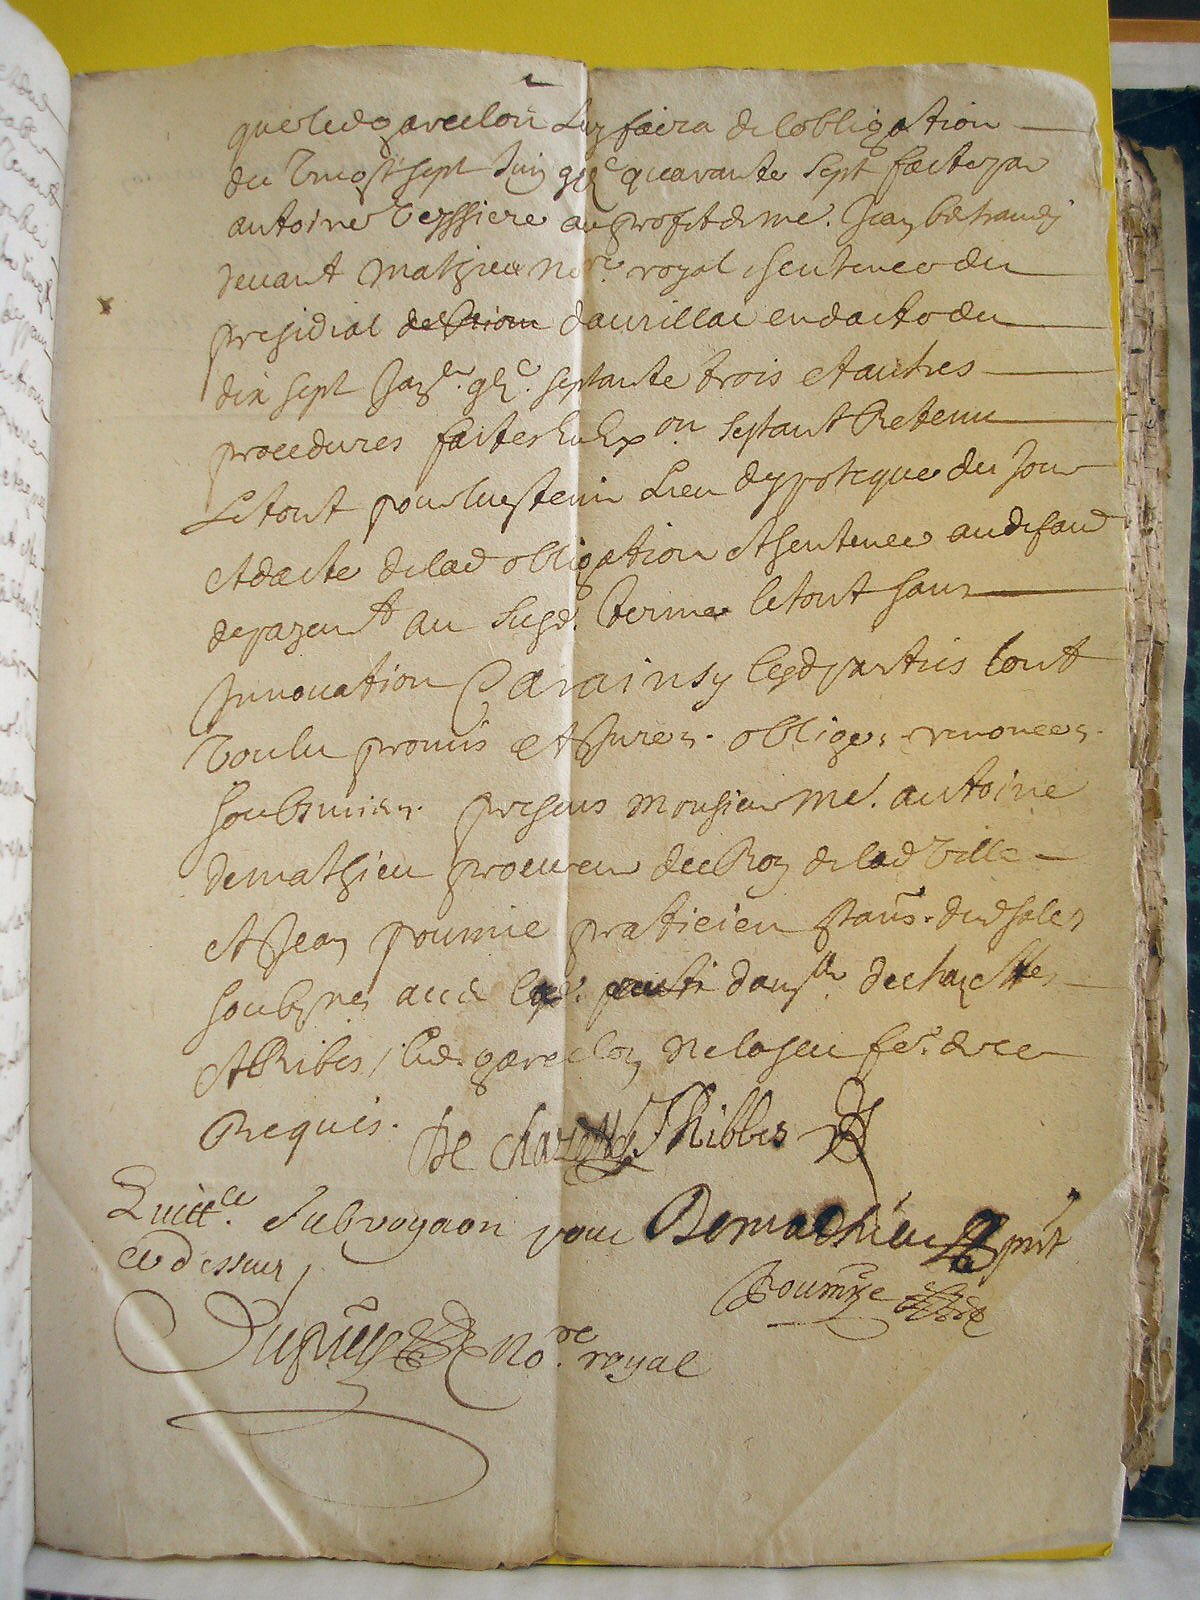 que led garcelon luy faira de lobligation
du vingt sept juin gbc quarante sept faite par
antoine veyssiere au profit de me. Jean
devant mathieu nore royal sentence du
presidial de Riom daurillac en dacte du
dix sept Janer. gbc. septante trois et autres
procedures faites en exon septant Retenu
le tout pour luy tenir lieu dypoteque du jour
et dacte de lad obligation et sentence au defaud
de payemt au susd. terme le tout sans
Innovation Car ainsy lesd parties lont
voulu promis et jures. obliges renonces.
soubsmises. presens monsieur me. antoine
demathieu procureur du Roy de lad ville
et Jean poumie praticien
soubsnes avec lad. damlle. de chazettes
et Ribes / led. garcelon ne la sceu fe. de ce
Requis. De chazettes J Ribbes
Quictce. Subrogaon pour Demathieu pnt
cy dessus Poumye
nore. royal